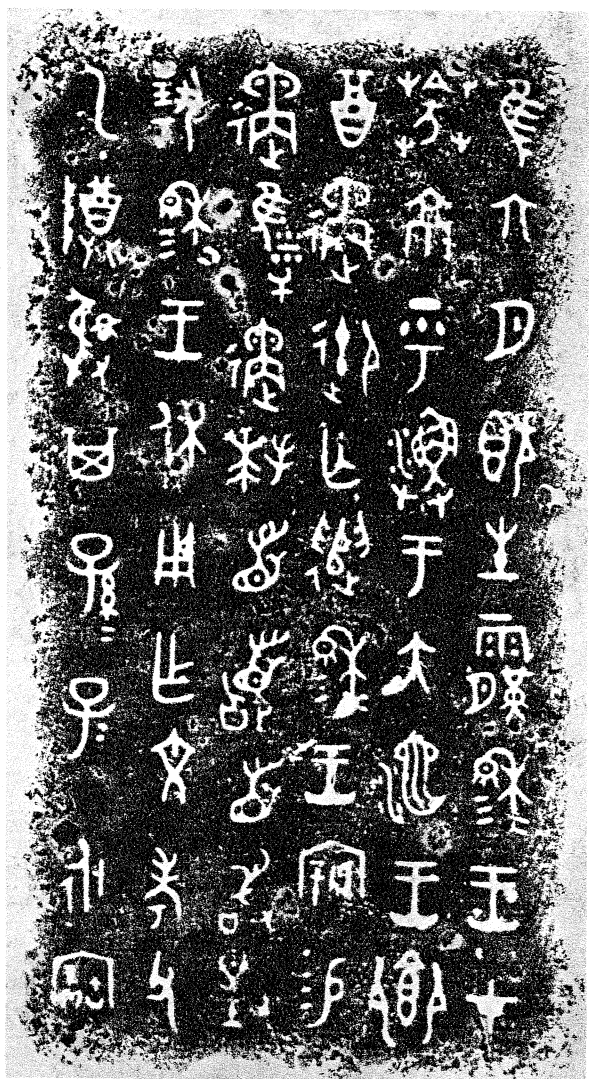 隹六月既生霸穆=王才
𦯊京乎漁于大池王饗
酉遹御亡遣穆=王寴易
遹遹拜首䭫首敢對
揚穆=王休用乍文考父
乙尊彝其孫=子=永寶